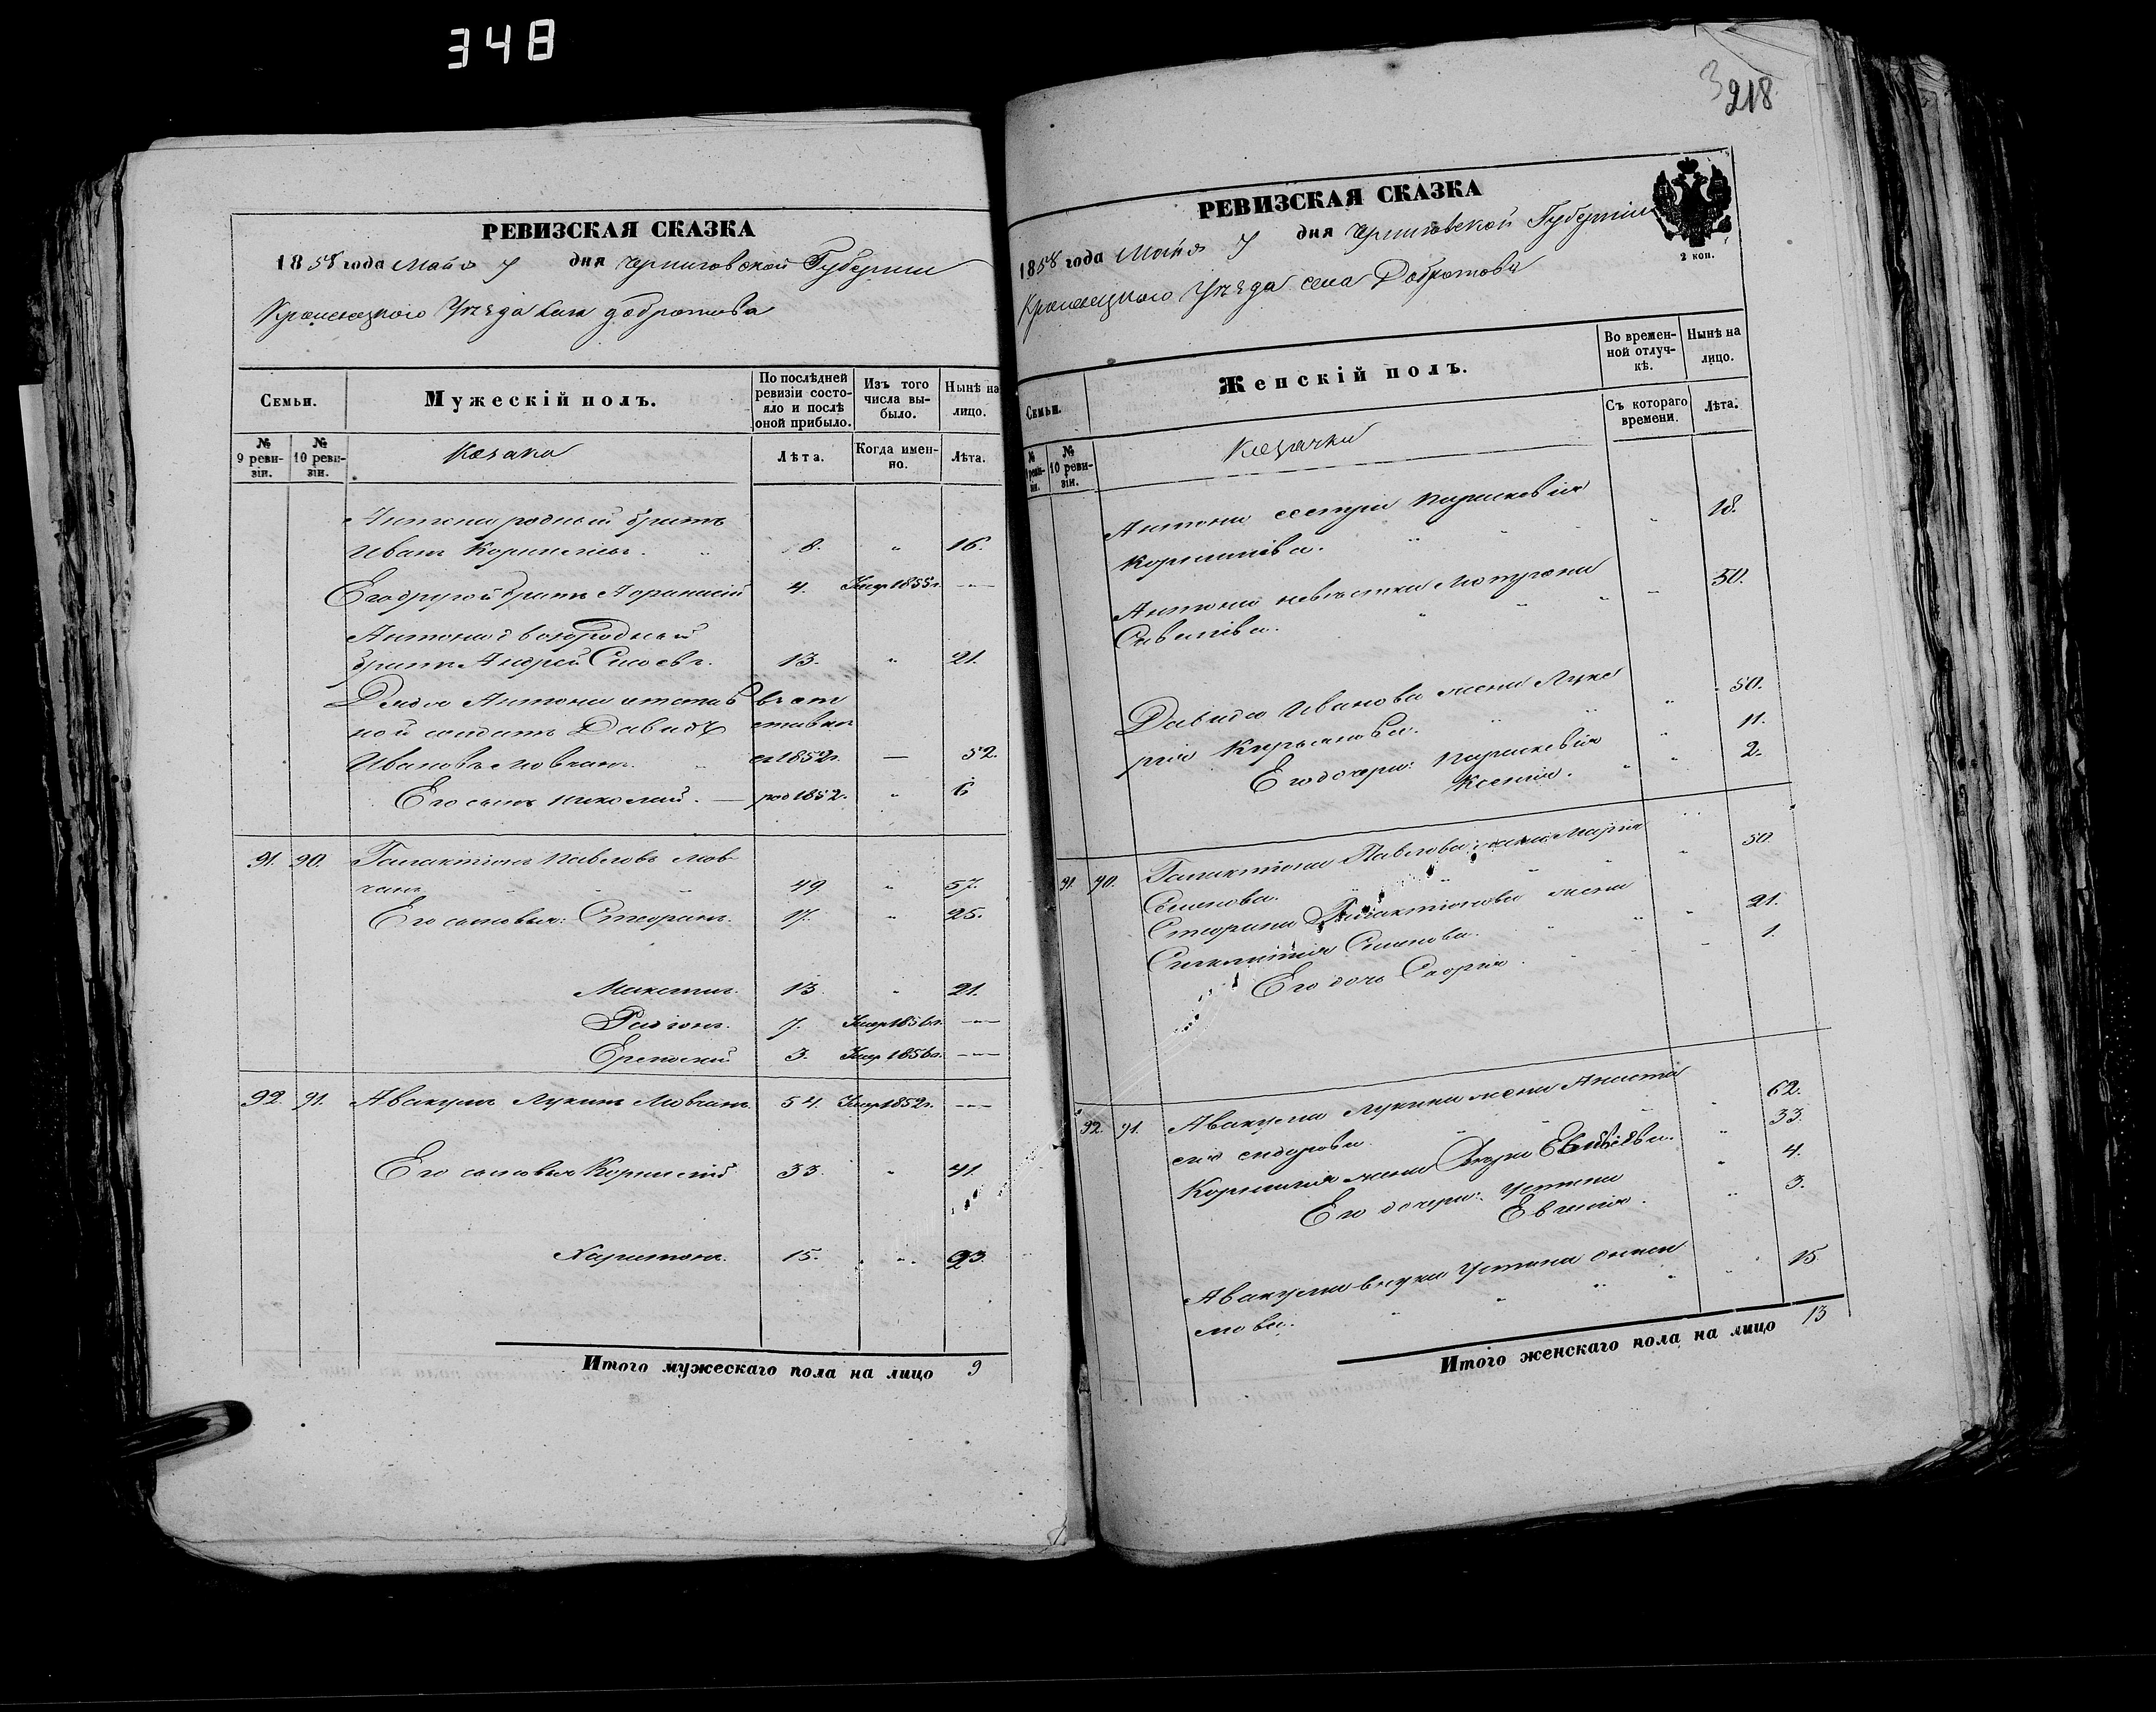 348
РЕВИЗСКАЯ СКАЗКА
1858 года Мая 7 дня Черниговской Губернии
Кролевецкого Уѣзда села Добротова
Семьи.
Мужескій полъ.
По послѣдней ревизіи состояло и послѣ оной прибыло.
Изъ того числа выбыло.
Нынѣ на лицо.
№ 9 ревизіи.
№ 10 ревизіи.
Казаки
Лѣта.
Когда именно.
Лѣта.
Антона родный братъ
Иванъ Корнилiевъ. 8. " 16.
Его другой братъ Афанасій 4. Умер 1855 г. —"—
Антона двоюродный
братъ Андрей 13. " 21.
Дядя Антона отстав в от
ной солдатъ Давидъ ставки
Ивановъ Мовчанъ. " съ 1852 г. — 52.
Его сынъ Николай. — род 1852. " 6
91. 90. Галактіонъ Павловъ Мов
чанъ 49 " 57.
Его сыновья: Стефанъ. 17. " 25.
Максимъ. 13. " 21.
Родіонъ. 7. Умер 1856 г. —"—
Ермолай 3. Умер 1856 г. —"—
92. 91. Авакумъ Лукинъ Мовчанъ 54. Умер 1852 г. —"—
Его сыновья Корнилій 33. " 41.
Харитонъ. 15. " 23.
Итого мужескаго пола на лицо 9
3
218
РЕВИЗСКАЯ СКАЗКА
1858 года Мая 7 дня Черниговской Губерніи
2 коп.
Кролевецкого Уѣзда села Добротова
Семьи.
Женскій полъ.
Во временной отлучкѣ.
Нынѣ на лицо.
Съ котораго времени.
Лѣта.
№ 9 ревизіи.
№ 10 ревизіи.
Козачки
Антона сестра Параскевія
Корниліева. " 18.
Антона невѣстка
Савеліева. " 50.
Давида Иванова жена Луке
рія Кирьянова. " 50.
Его дочери: Параскевія " 11.
Ксенія. " 2.
91. 90. Галактіона Павлова жена Марія
Семенова. " 50.
Стефана Галактіонова жена
Синклитія Семенова. " 21.
Его дочь " 1.
92. 91. Авакума Лукина жена Анаста
сія Сидорова " 62.
Корнилія жена 33.
Его дочери: Устина " 4.
Евгенія. " 3.
Авакума внука Устина
мова. " 15
Итого женскаго пола на лицо 13